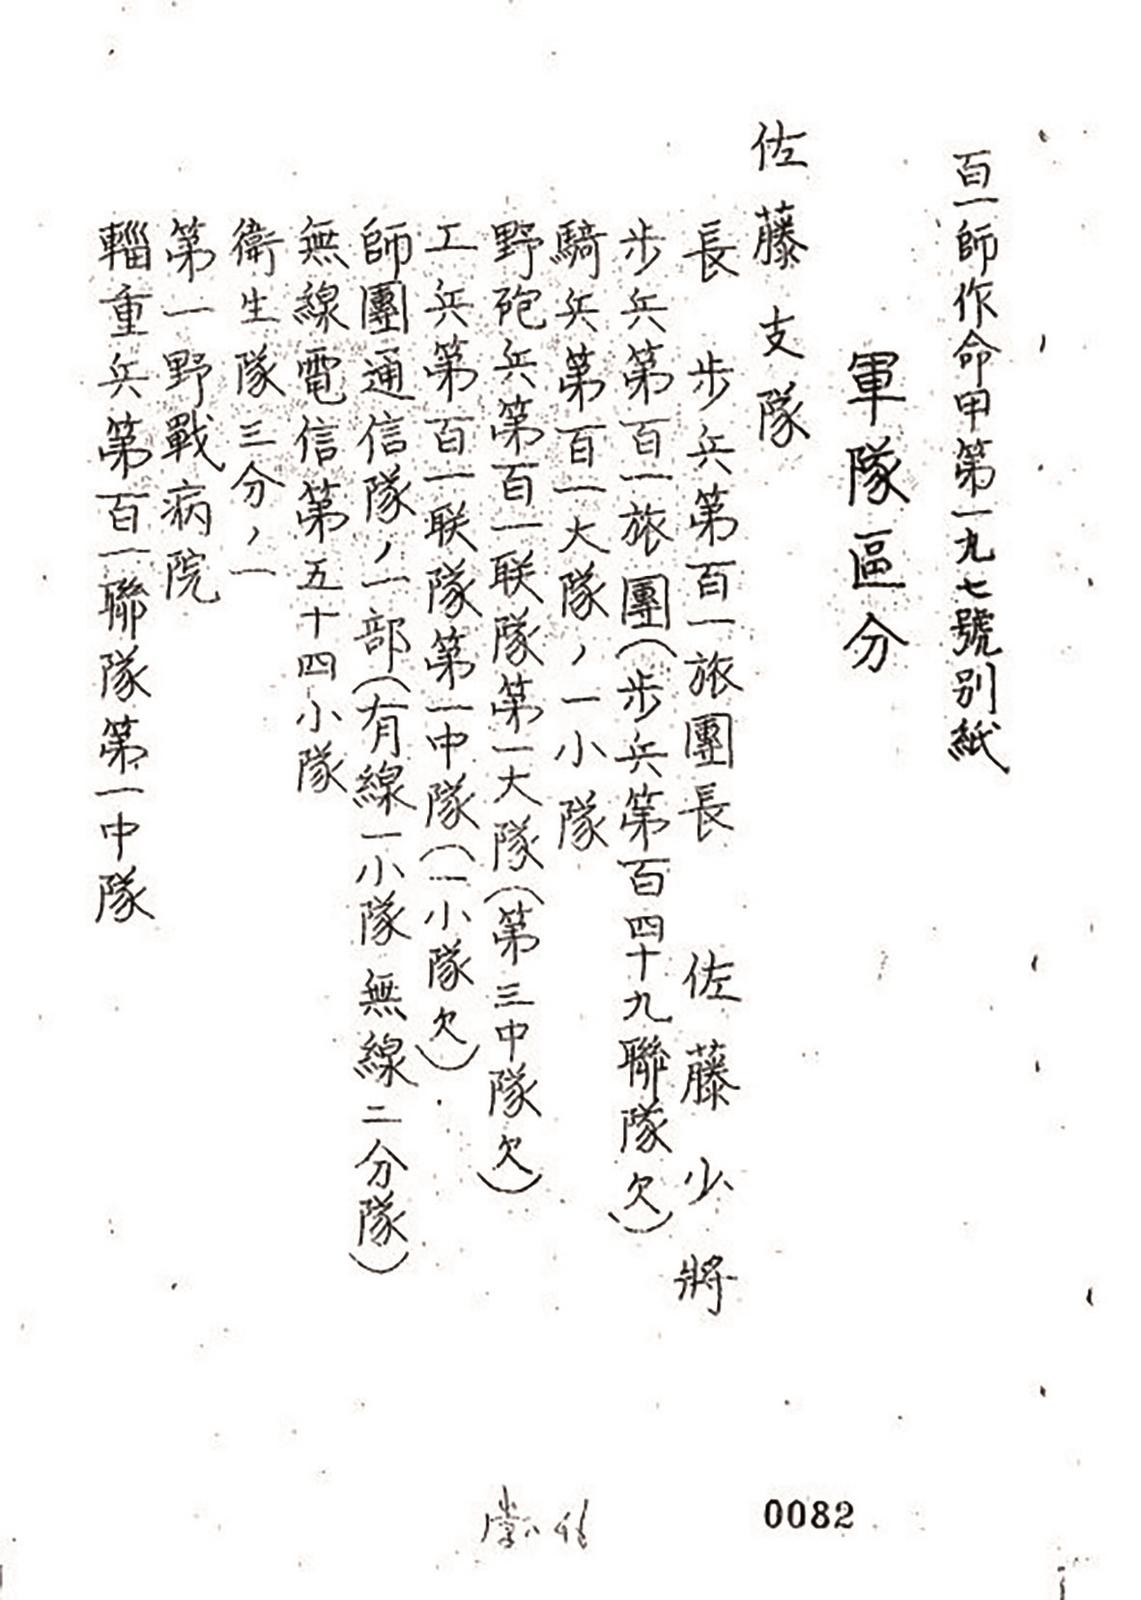 百一師作命甲第一九七號別紙
軍隊區分
佐藤支隊
長 步兵第百一旅團長 佐藤少將
步兵第百一旅團(步兵第百四十九聯隊欠)
騎兵第百一大隊ノ一小隊
野砲兵第百一联隊第一大隊(第三中隊欠)
工兵第百一联隊第一中隊(一小隊欠)
師團通信隊ノ一部(有線一小隊 無線二分隊)
無線電信第五十四小隊
衛生隊三分ノ一
第一野戰病院
輜重兵第百一聯隊第一中隊
0082